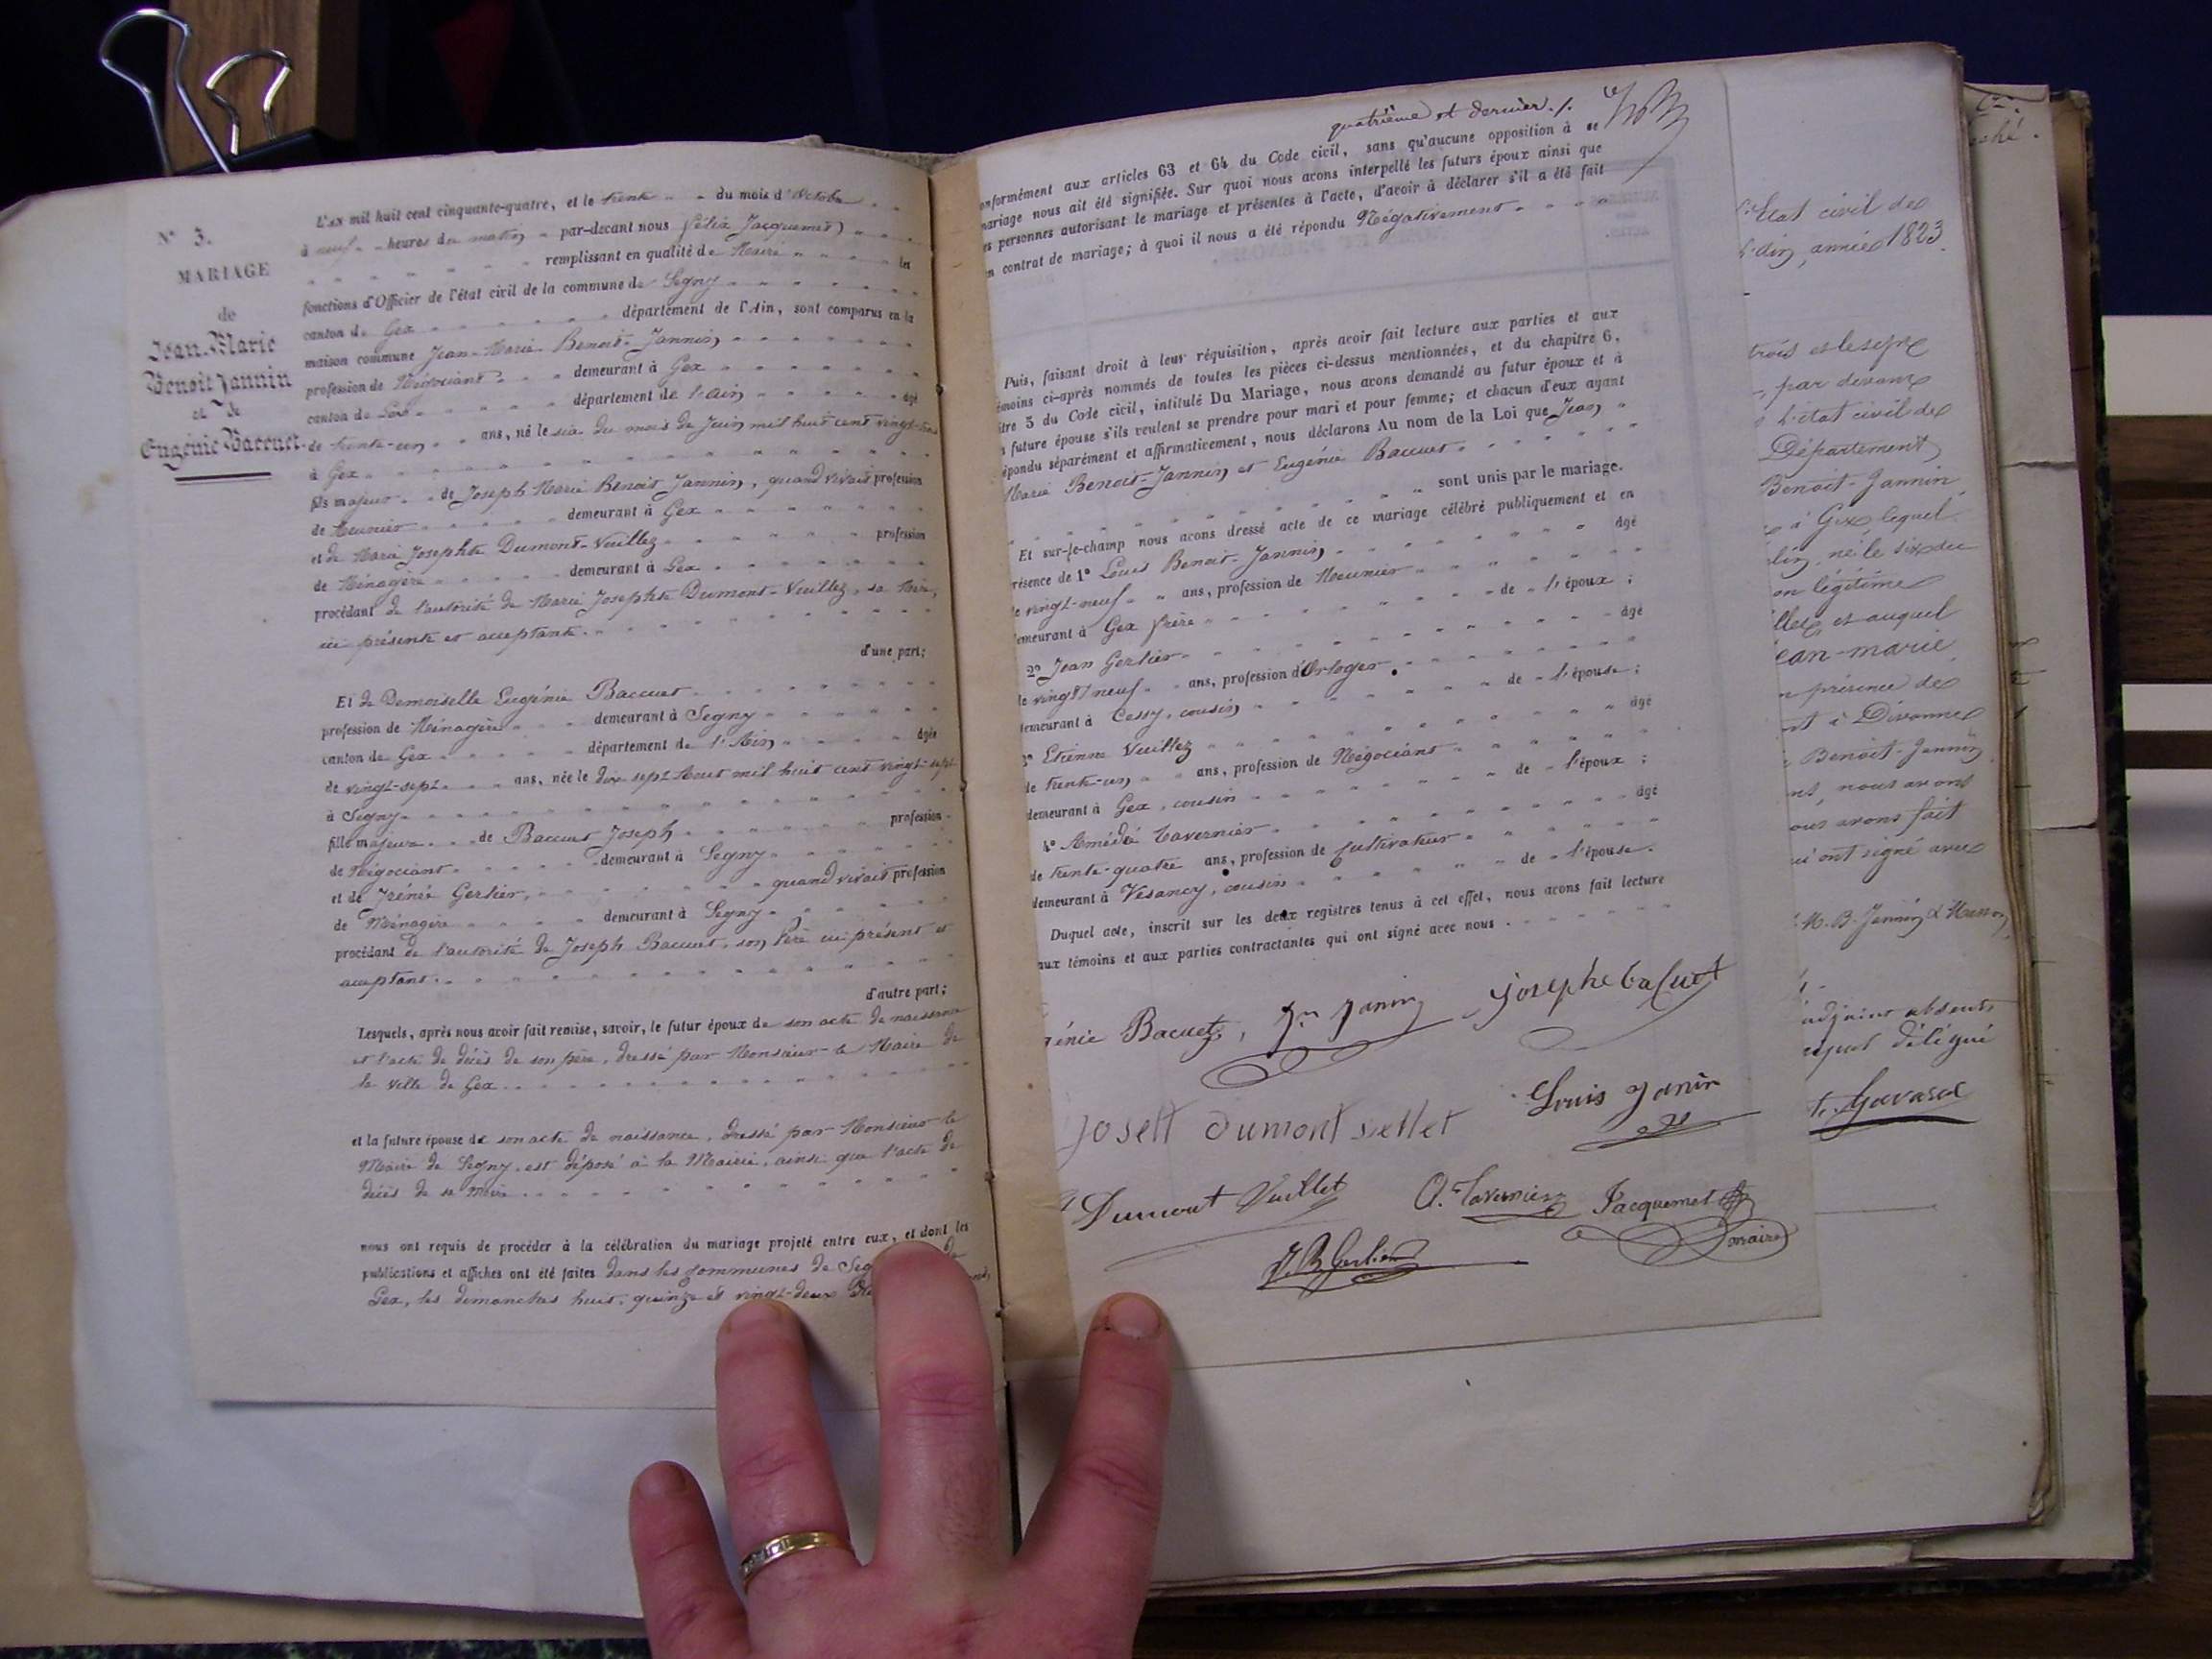 N° 3.
MARIAGE
de
Jean-Marie
Benoit Jannin
et de
Eugénie Baccuet.
L'an mil huit cent cinquante-quatre, et le trente du mois d'Octobre
à neuf heures du matin par-devant nous Félix Jacquemet
remplissant en qualité de Maire les
fonctions d'Officier de l'état civil de la commune de Segny
canton de Gex département de l'Ain, sont comparus en la
maison commune Jean-Marie Benoit-Jannin
profession de Négociant demeurant à Gex
canton de Gex département de l'Ain âgé
de trente-un ans, né le six du mois de Juin mil huit cent vingt-trois
à Gex
fils majeur de Joseph Marie Benoit Jannin, quand vivait profession
de Meunier demeurant à Gex
et de Marie Josephte Dumont-Vuillez profession
de Ménagère demeurant à Gex
procédant de l'autorité de Marie Josephte Dumont-Vuillez, sa Mère,
ici présente et acceptante.
d'une part;
Et de Demoiselle Eugénie Baccuet
profession de Ménagère demeurant à Segny
canton de Gex département de l'Ain âgée
de vingt-sept ans, née le dix sept Aout mil huit cent vingt-sept
à Segny
fille majeure de Baccuet Joseph profession
de Négociant demeurant à Segny
et de Irénée Gerlier, quand vivait profession
de Ménagère demeurant à Segny
procédant de l'autorité de Joseph Baccuet, son Père ici présent et
acceptant.
d'autre part;
Lesquels, après nous avoir fait remise, savoir, le futur époux de son acte de naissance
et l'acte de décès de son père, dressé par Monsieur le Maire de
la ville de Gex
et la future épouse de son acte de naissance, dressé par Monsieur le
Maire de Segny, est déposé à la Mairie, ainsi que l'acte de
décès de sa Mère
nous ont requis de procéder à la célébration du mariage projeté entre eux, et dont les
publications et affiches ont été faites dans les communes de Seg de
Gex, les dimanches huit, quinze et vingt-deux
quatrième et dernier./.
onformément aux articles 63 et 64 du Code civil, sans qu'aucune opposition à ce
mariage nous ait été signifiée. Sur quoi nous avons interpellé les futurs époux ainsi que
es personnes autorisant le mariage et présentes à l'acte, d'avoir à déclarer s'il a été fait
n contrat de mariage; à quoi il nous a été répondu Négativement
Puis, faisant droit à leur réquisition, après avoir fait lecture aux parties et aux
émoins ci-après nommés de toutes les pièces ci-dessus mentionnées, et du chapitre 6,
itre 5 du Code civil, intitulé Du Mariage, nous avons demandé au futur époux et à
a future épouse s'ils veulent se prendre pour mari et pour femme; et chacun d'eux ayant
épondu séparément et affirmativement, nous déclarons Au nom de la Loi que Jean
Marie Benoit-Jannin et Eugénie Baccuet
sont unis par le mariage.
Et sur-le-champ nous avons dressé acte de ce mariage célébré publiquement et en
résence de 1° Louis Benoit-Jannin âgé
e vingt-neuf ans, profession de Meunier
emeurant à Gex frère de l'époux;
2° Jean Gerlier âgé
e vingt neuf ans, profession d'Orloger
emeurant à Cessy, cousin de l'épouse;
3° Etienne Vuillez âgé
de trente-un ans, profession de Négociant
demeurant à Gex, cousin de l'époux;
4° Amédée Tavernier âgé
de trente-quatre ans, profession de Cultivateur
demeurant à Vesancy, cousin de l'épouse.
Duquel acte, inscrit sur les deux registres tenus à cet effet, nous avons fait lecture
aux témoins et aux parties contractantes qui ont signé avec nous.
génie Bacuet, Jn Janin Josephe baCuet
Josett dumont viellet Louis Janin
Dumont Vuillet A. Tavernier Jacquemet
maire
J. B. Gerlier
l'Etat civil de
année 1823
trois et le sept
par devant
l'état civil de
Département
Benoit-Jannin
à Gex lequel
né le six du
on légitime
et auquel
ean-marie
n présence de
nt à Divonne
Benoit-Jannin
nt, nous avons
ous avons fait
ui ont signé avec
M. B. Jannin
adjoint absent
délégué